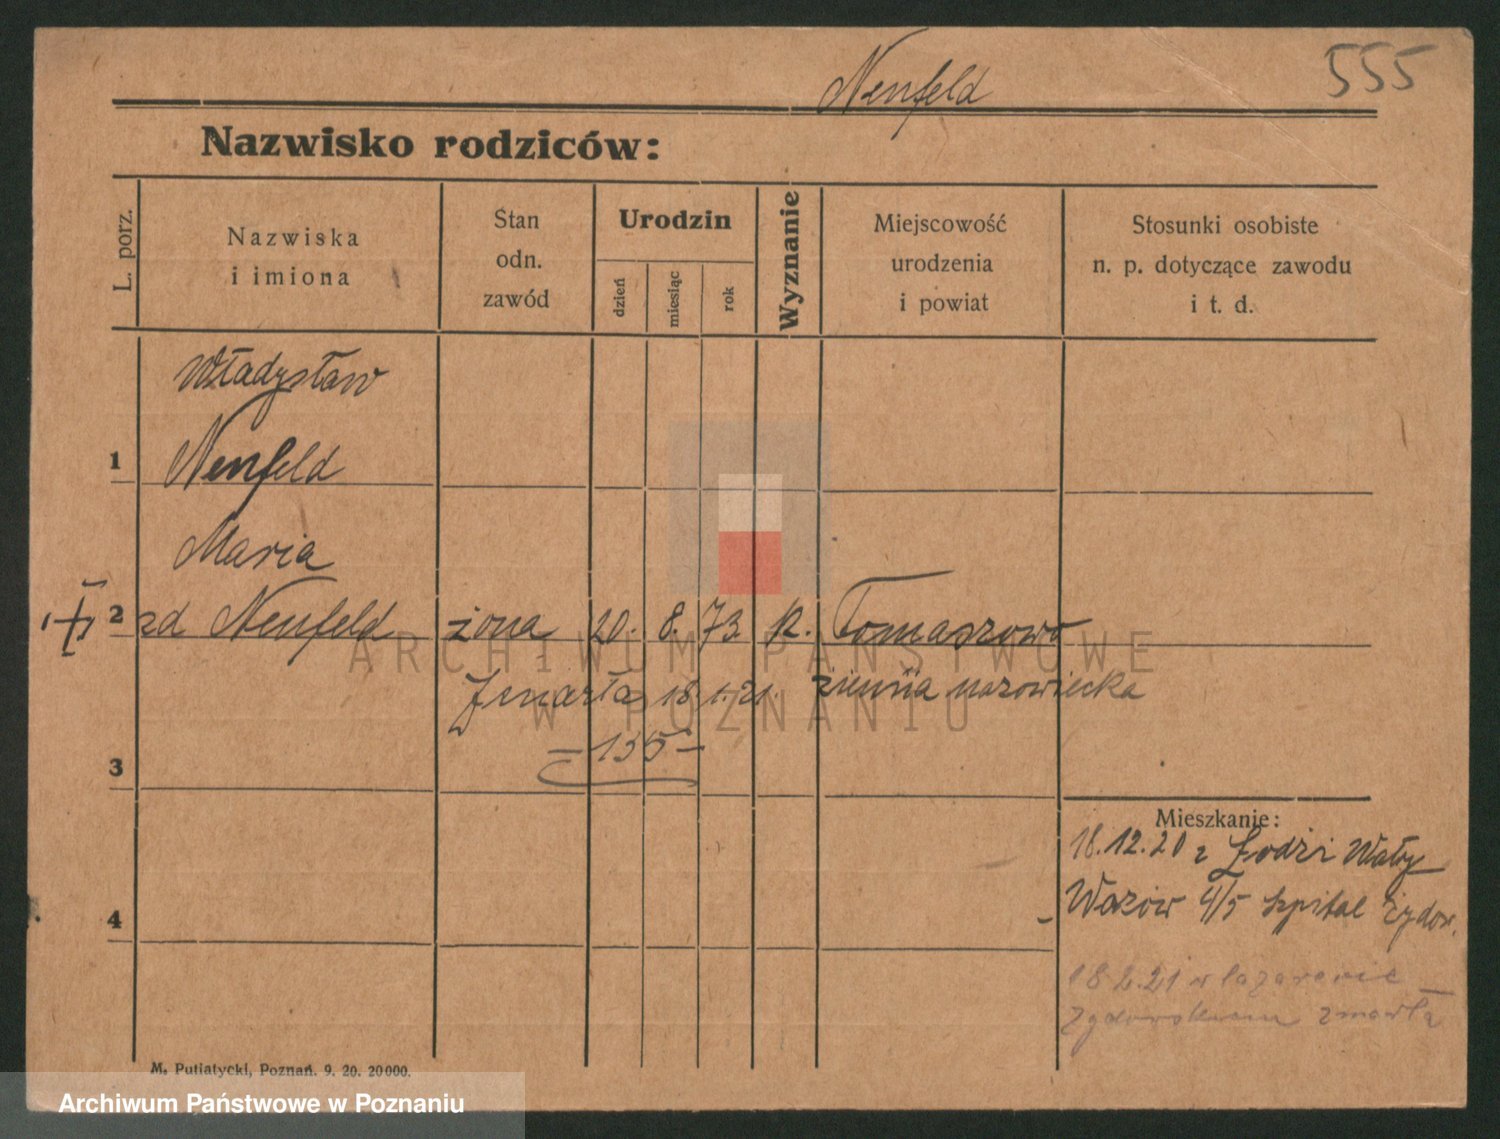 Neufeld
555
Nazwisko rodziców:
L. porz.
Nazwiska
i imiona
Stan
odn.
zawód
Urodzin
dzień
miesiąc
rok
Wyznanie
Miejscowość
urodzenia
i powiat
Stosunki osobiste
n. p. dotyczące zawodu
i t. d.
Władysław
1
Neufeld
Maria
2 zd Neufeld żona 20. 8. 73 k. Tomaszowo
Zmarła 18.1.21. ziemia mazowiecka
— 135 —
3
Mieszkanie:
18.12.20 z Łodzi Wały
Wazów 4/5 szpital żydow.
4
18.2.21 w lazarecie
żydowskiem zmarła
M. Putiatycki, Poznań. 9. 20. 20000.
ARCHIWUM PAŃSTWOWE
W POZNANIU
Archiwum Państwowe w Poznaniu